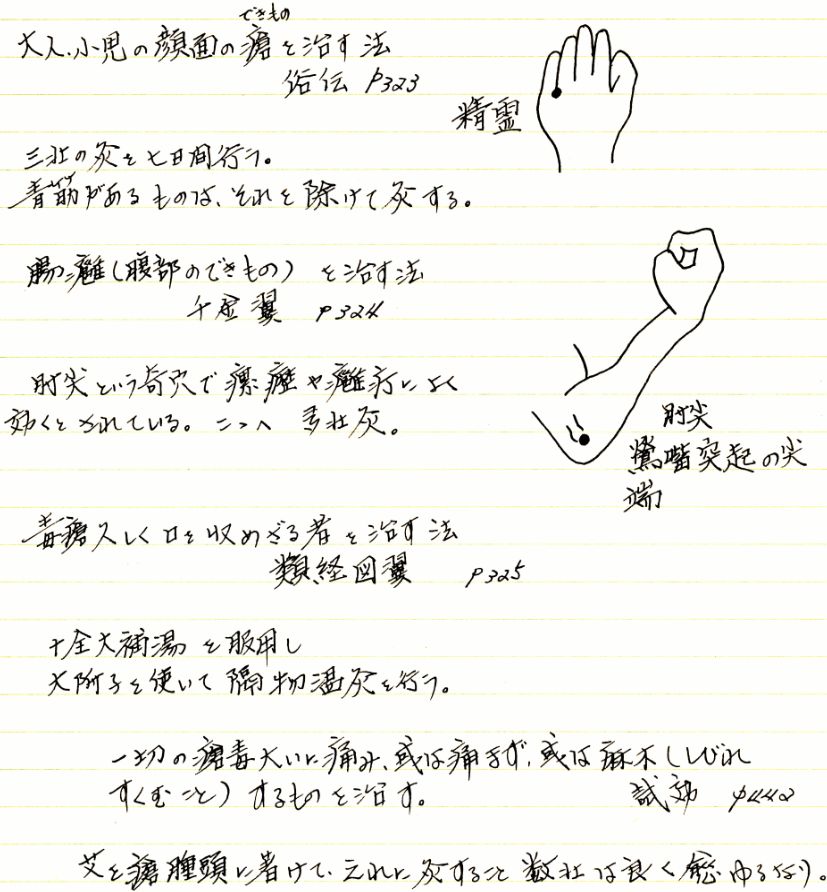 できもの
大人、小児の顔面の瘡を治す法
俗伝 P323
精霊
三壮の灸を七日間行う。
青筋があるものは、それを除けて灸する。
腸癰(腹部のできもの) を治す法
千金翼 P324
肘尖という奇穴で瘰癧や癰疔によく
効くとされている。二穴へ 多壮灸。
肘尖
鶯嘴突起の尖
端
毒瘡久しく口を収めざる者を治す法
類経図翼 P325
十全大補湯を服用し
大附子を使いて隔物温灸を行う。
一切の瘡毒大いに痛み、或は痛まず、或は麻木(しびれ
すくむこと)するものを治す。 試効 P442
艾を瘡腫頭に着けて、之れに灸すること数壮は良く癒ゆるなり。